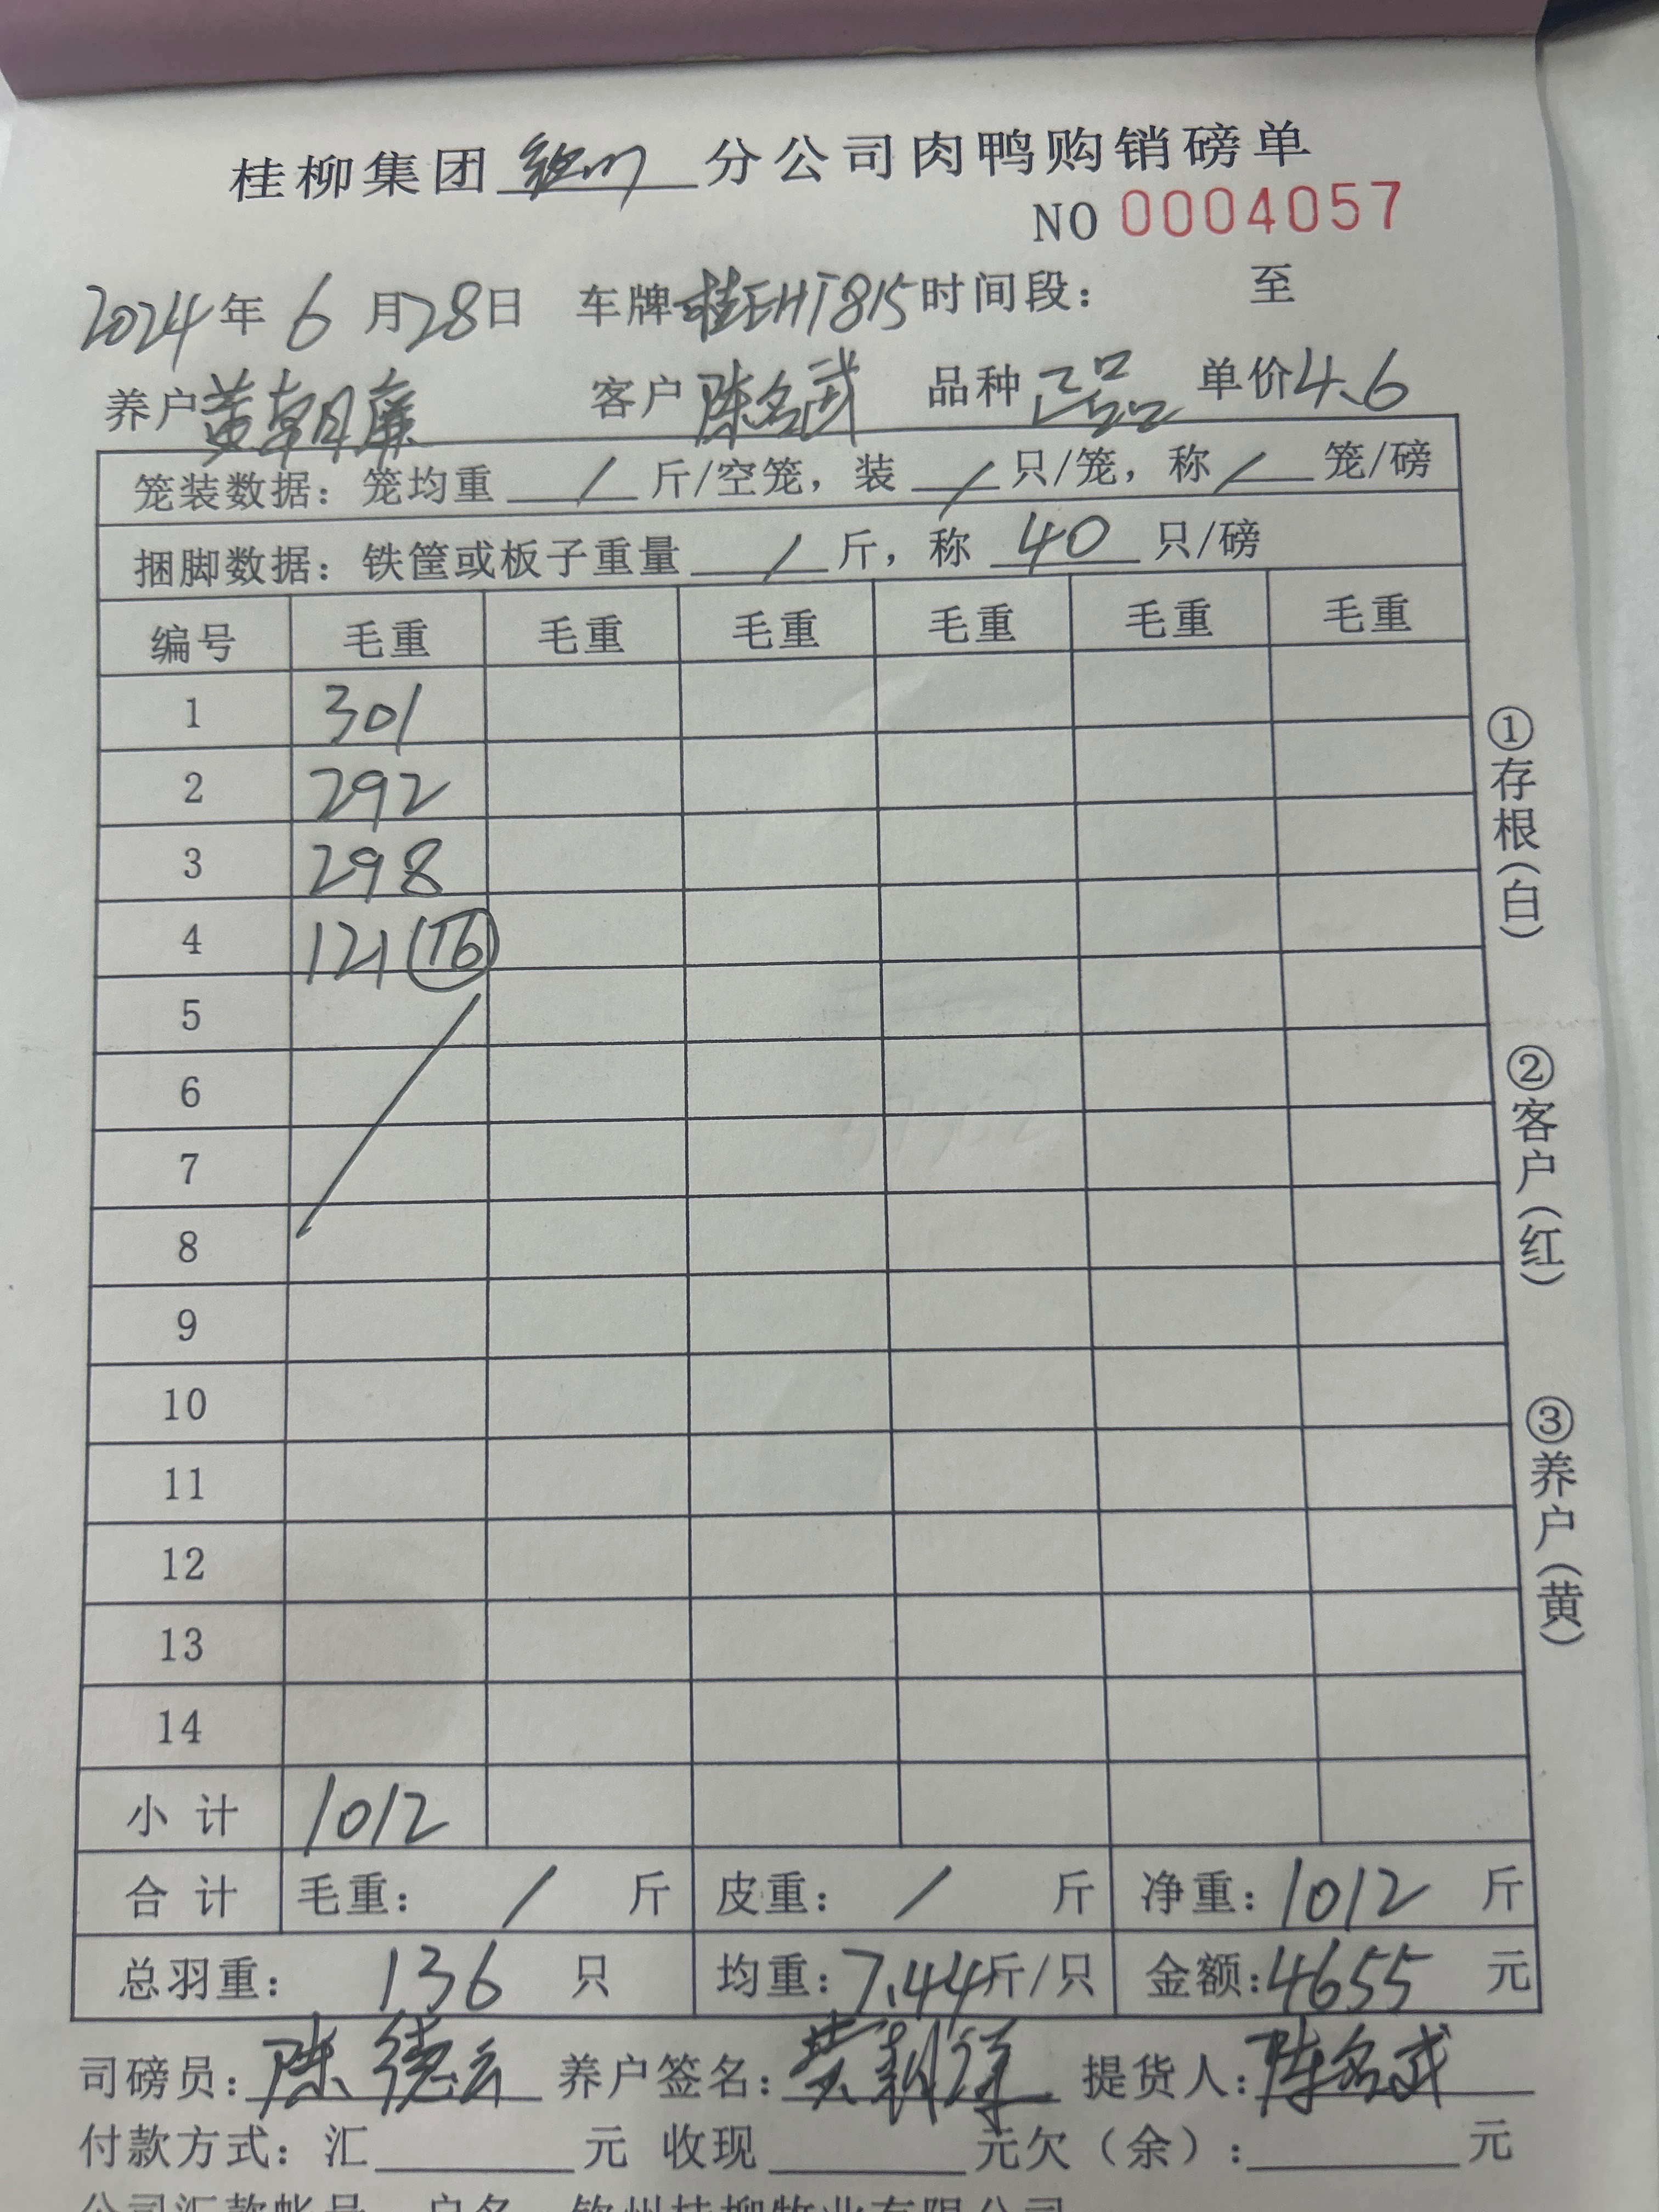 桂柳集团 钦州 分公司肉鸭购销磅单
NO 0004057
2024年 6 月28日 车牌桂EHT815时间段： 至
养户黄朝廉 客户 陈名武 品种 正品 单价4.6
笼装数据：笼均重 / 斤/空笼，装 / 只/笼，称 / 笼/磅
捆脚数据：铁筐或板子重量 / 斤，称 40 只/磅
编号 毛重 毛重 毛重 毛重 毛重 毛重
1 301
2 292
3 298
4 121 (16)
5
6
7
8
9
10
11
12
13
14
小 计 1012
合 计 毛重： / 斤 皮重： / 斤 净重：1012 斤
总羽重： 136 只 均重：7.44斤/只 金额：4655 元
司磅员：陈德云 养户签名：黄 提货人：陈名武
付款方式：汇 元 收现 元欠（余）： 元
公司汇款帐号 户名 钦州桂柳牧业有限公司
①存根（白）
②客户（红）
③养户（黄）